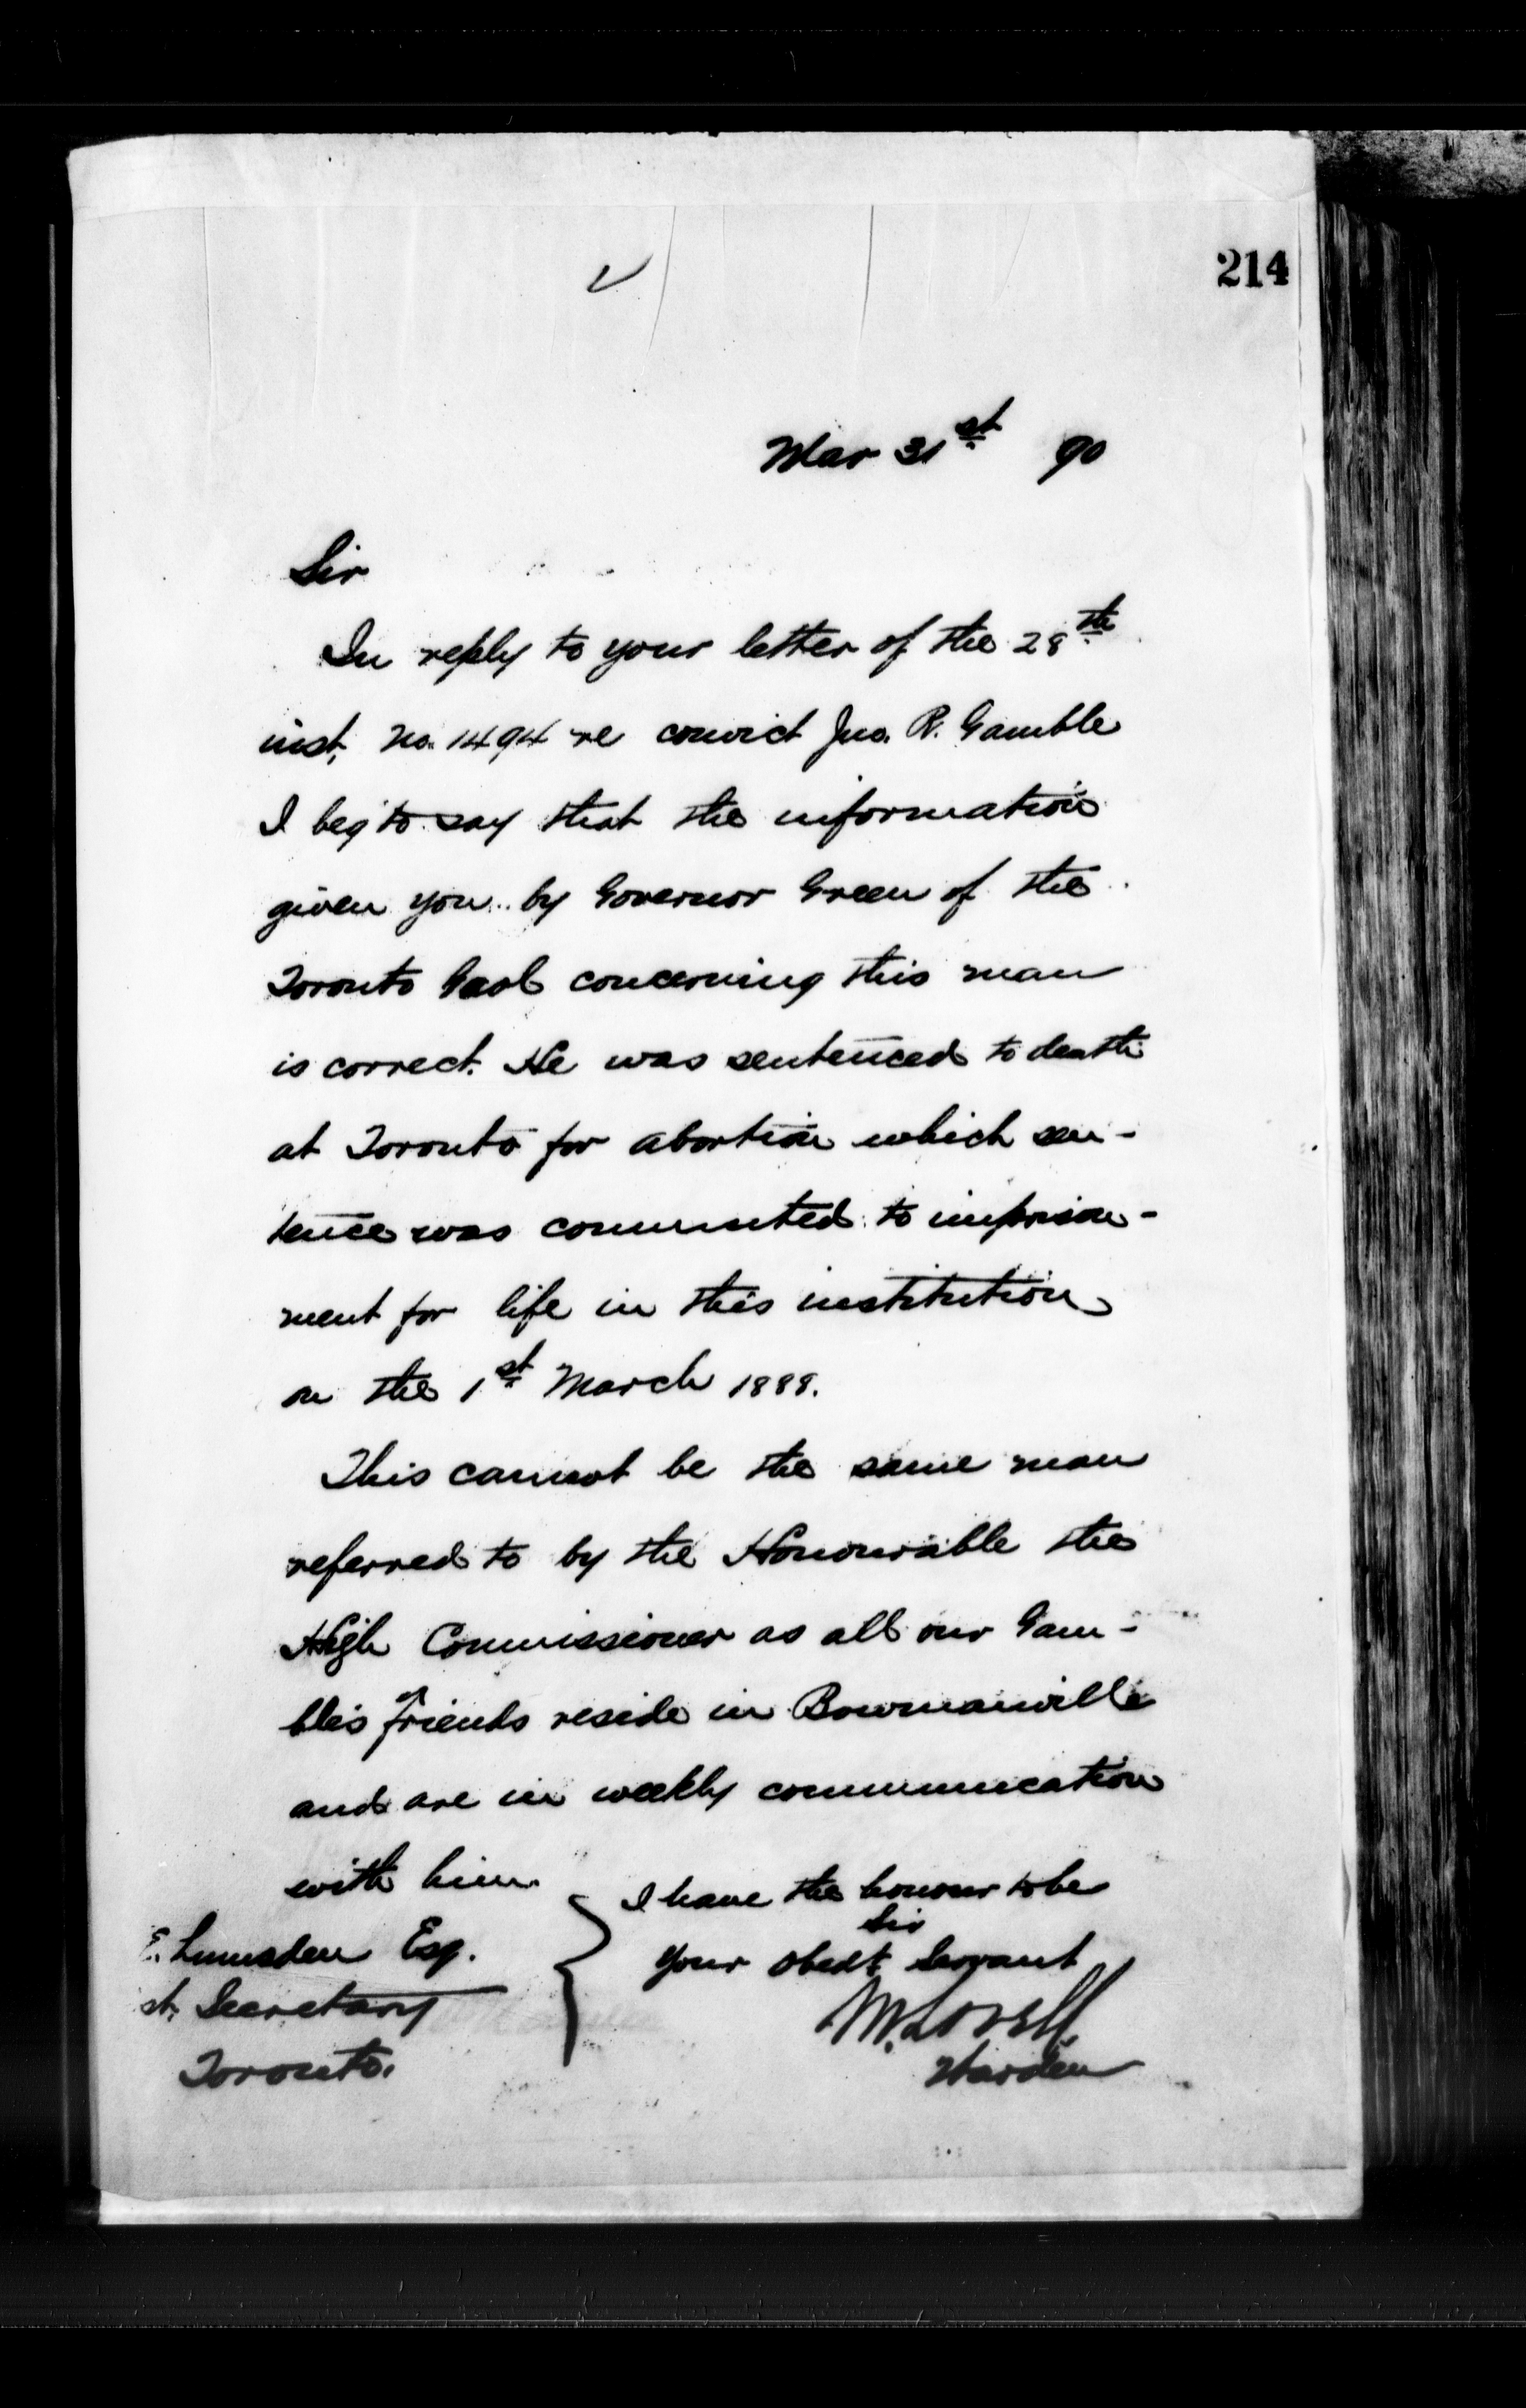 214
Mar 31st 90
Sir
In reply to your letter of the 28th
inst, No. 1494 re convict Jno. R. Gamble
I beg to say that the information
given you by Governor Green of the
Toronto Gaol concerning this man
is correct. He was sentenced to death
at Toronto for abortion which sen-
tence was commuted to imprison-
ment for life in this institution
on the 1st March 1888.
This cannot be the same man
referred to by the Honourable the
High Commissioner as all our Gam-
ble's friends reside in Bowmanville
and are in weekly communication
with him.
I have the honour to be
Sir
Your Obedt Servant
M. Lavell
Warden
Lumsden Esq.
st. Secretary
Toronto.